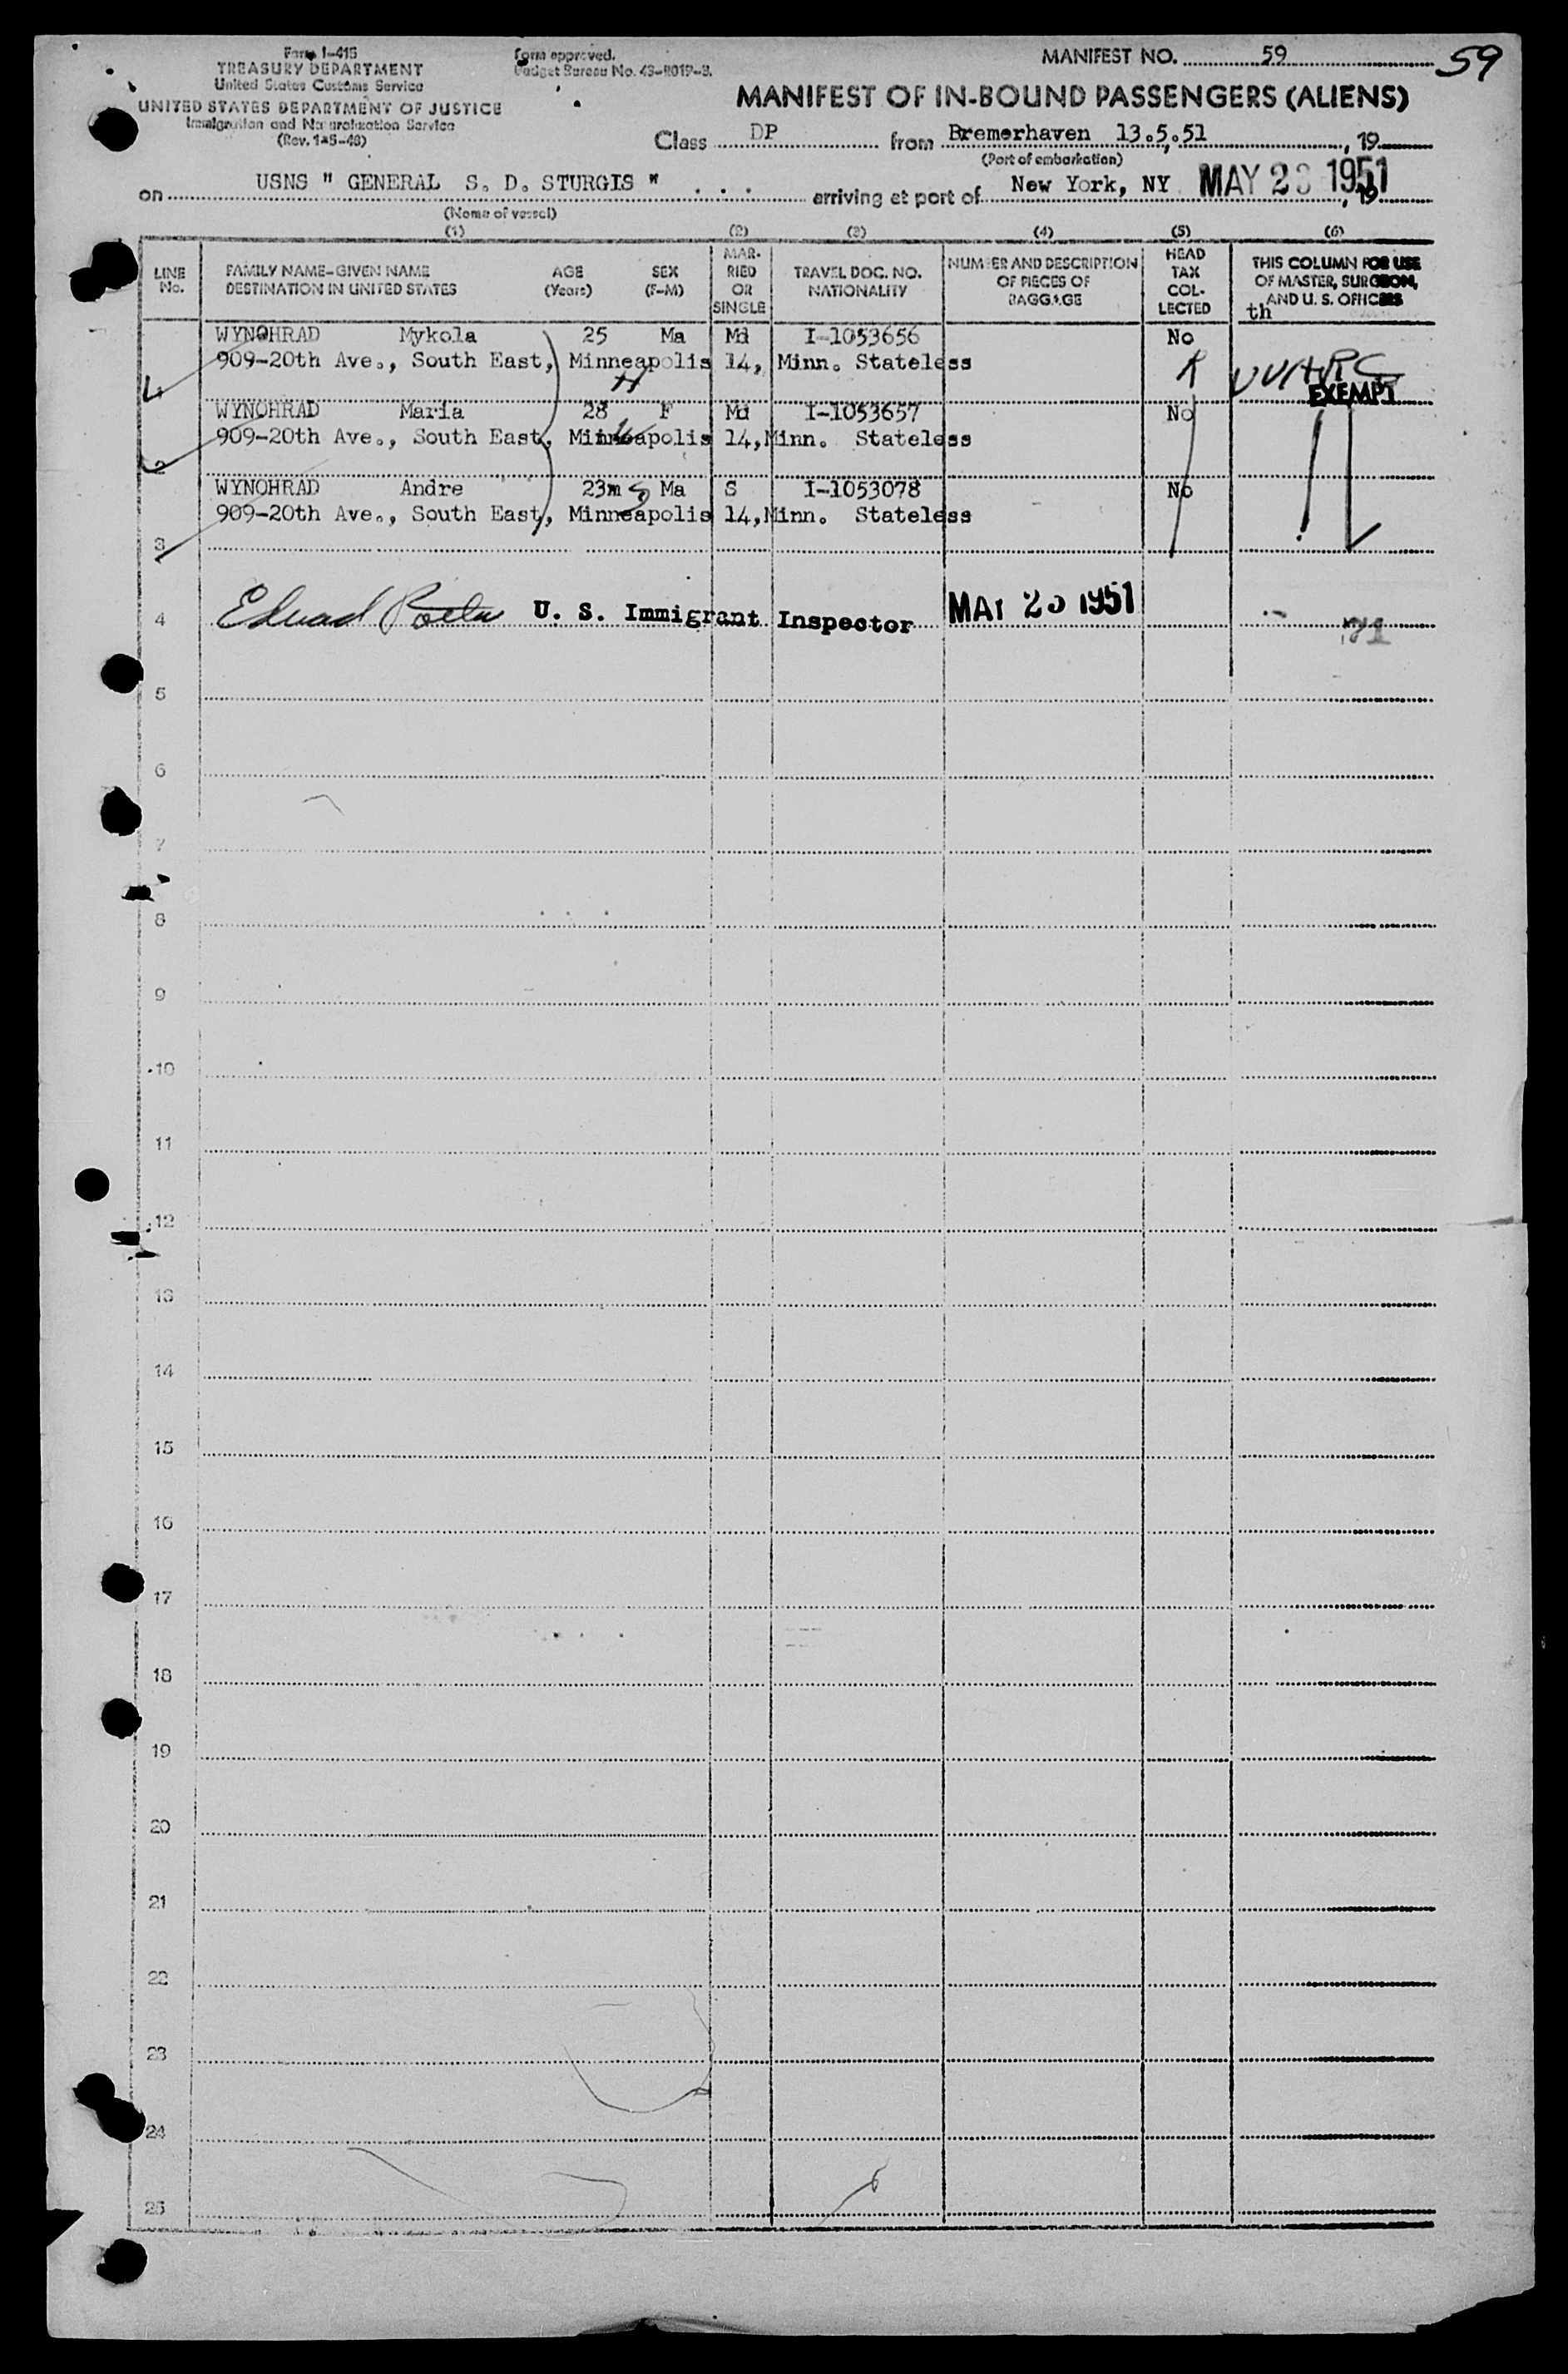 Form I-415
TREASURY DEPARTMENT
United States Customs Service
UNITED STATES DEPARTMENT OF JUSTICE
Immigration and Naturalization Service
(Rev. 1-5-48)
Form approved.
Budget Bureau No. 43-R019-3.
MANIFEST NO. 59
59
MANIFEST OF IN-BOUND PASSENGERS (ALIENS)
Class DP from Bremerhaven 13.5.51, 19
(Port of embarkation)
on USNS " GENERAL S. D. STURGIS " . . . arriving at port of New York, NY MAY 23 1951, 19
(Name of vessel)
(1) (2) (3) (4) (5) (6)
LINE No.
FAMILY NAME-GIVEN NAME
DESTINATION IN UNITED STATES
AGE
(Years)
SEX
(F-M)
MAR-
RIED
OR
SINGLE
TRAVEL DOC. NO.
NATIONALITY
NUMBER AND DESCRIPTION
OF PIECES OF
BAGGAGE
HEAD
TAX
COL-
LECTED
THIS COLUMN FOR USE
OF MASTER, SURGEON,
AND U. S. OFFICERS
th
WYNOHRAD Mykola 25 Ma Md I-1053656 No
909-20th Ave., South East, Minneapolis 14, Minn. Stateless
EXEMPT
WYNOHRAD Maria 28 F Md I-1053657 No
909-20th Ave., South East, Minneapolis 14,Minn. Stateless
2
WYNOHRAD Andre 23m Ma S I-1053078 No
909-20th Ave., South East, Minneapolis 14,Minn. Stateless
3
4 U. S. Immigrant Inspector MAY 23 1951
5
6
7
8
9
10
11
12
13
14
15
16
17
18
19
20
21
22
23
24
25